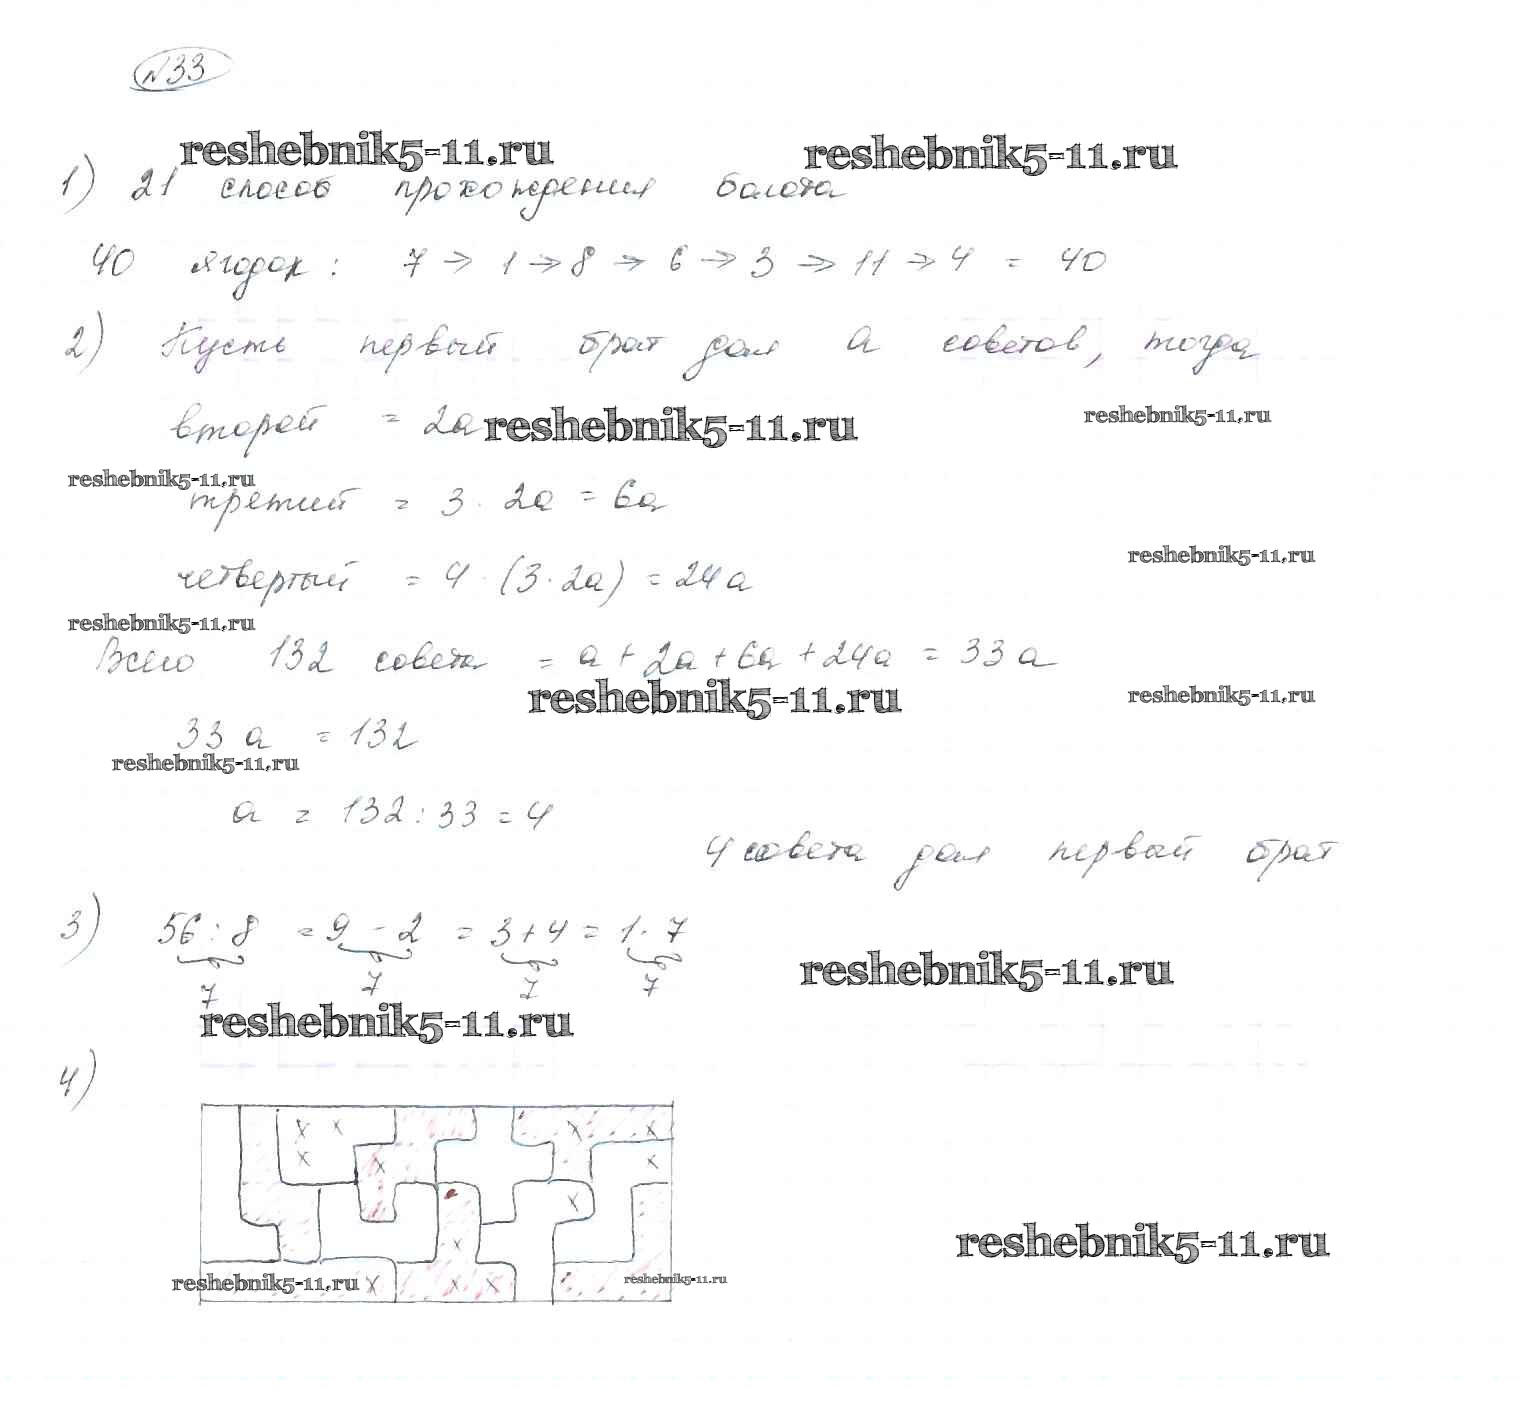 №33
reshebnik5-11.ru reshebnik5-11.ru
1) 21 способ прохождения болота
40 ягодок : 7 → 1 → 8 → 6 → 3 → 11 → 4 = 40
2) Пусть первый брат дал a советов, тогда
второй = 2a reshebnik5-11.ru reshebnik5-11.ru
reshebnik5-11.ru
третий = 3 · 2a = 6a
reshebnik5-11.ru
четвертый = 4 · (3 · 2a) = 24a
reshebnik5-11.ru
Всего 132 совета = a + 2a + 6a + 24a = 33a
reshebnik5-11.ru reshebnik5-11.ru
33 a = 132
reshebnik5-11.ru
a = 132 : 33 = 4
4 совета дал первый брат
3) 56 : 8 = 9 - 2 = 3 + 4 = 1 · 7
reshebnik5-11.ru
7 7 7 7
reshebnik5-11.ru
4)
x x x x
x x x
x
x
reshebnik5-11.ru
reshebnik5-11.ru x x x reshebnik5-11.ru